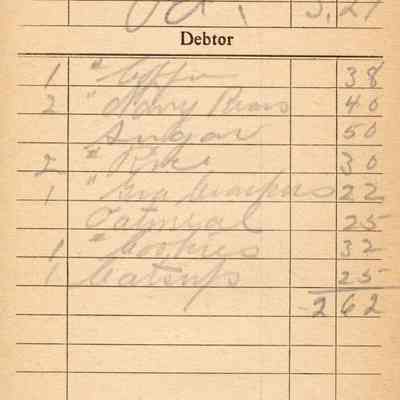 Pd. 3.27
Debtor
1 # Coffee 38
2 " Navy Beans 40
Sugar 50
2 # Rice 30
1 " Gra Crackers 22
Oatmeal 25
1 # Cookies 32
1 Catsup 25
2 62